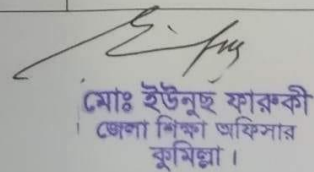 মোঃ ইউনুছ ফারুকী
জেলা শিক্ষা অফিসার
কুমিল্লা।